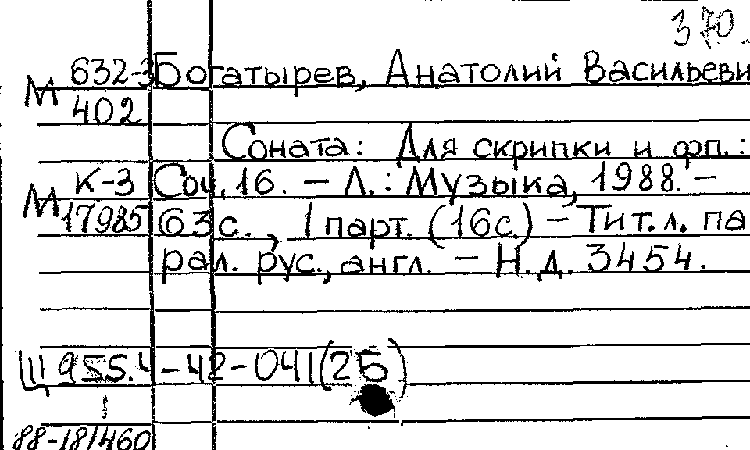 370.
М 632-3 Богатырев, Анатолий Васильеви
402
Соната: Для скрипки и фп.:
М К-3 Соч. 16. – Л.: Музыка, 1988. –
17985 63 с., 1 парт. (16 с.) – Тит. л. па
рал. рус., англ. – Н. д. 3454.
Щ 955.4-42-041(2Б)
88-18/460